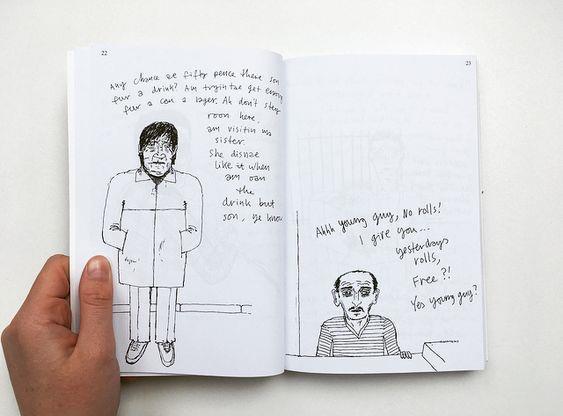 22
Any chance ae fifty pence there son
fur a drink? Am tryin tae get enough
fur a can a lager. Ah don't stey
roon here,
am visitin ma
sister.
She disnae
like it when
am oan
the
drink but
son, ye know
23
Ahhh young guy, No rolls!
I give you...
yesterdays
rolls,
Free?!
Yes young guy?